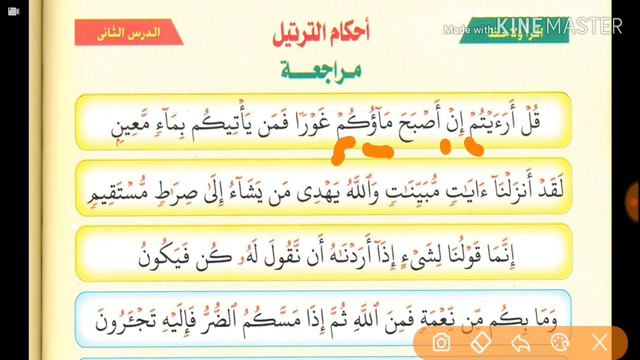 Made with KINEMASTER
اقرأ ولاحظ
أحكام الترتيل
الدرس الثانى
مراجعة
قُلْ أَرَءَيْتُمْ إِنْ أَصْبَحَ مَآؤُكُمْ غَوْرًا فَمَن يَأْتِيكُم بِمَآءٍ مَّعِينٍ
لَقَدْ أَنزَلْنَآ ءَايَـٰتٍ مُّبَيِّنَـٰتٍ وَٱللَّهُ يَهْدِى مَن يَشَآءُ إِلَىٰ صِرَٰطٍ مُّسْتَقِيمٍ
إِنَّمَا قَوْلُنَا لِشَىْءٍ إِذَآ أَرَدْنَـٰهُ أَن نَّقُولَ لَهُۥ كُن فَيَكُونُ
وَمَا بِكُم مِّن نِّعْمَةٍ فَمِنَ ٱللَّهِ ثُمَّ إِذَا مَسَّكُمُ ٱلضُّرُّ فَإِلَيْهِ تَجْـَٔرُونَ